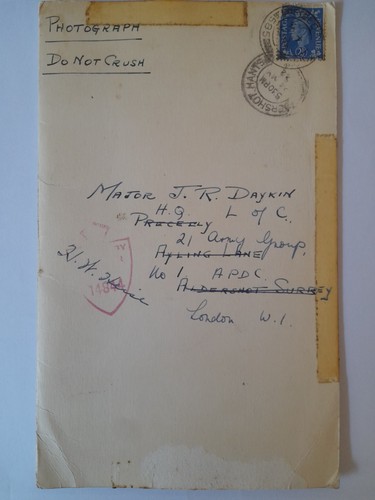 PHOTOGRAPH
DO NOT CRUSH
ALDERSHOT HANTS
5.30PM
MAJOR J. R. DAYKIN
H.Q. L of C.,
PRECELLY
21 Army Group,
AYLING LANE
No 1 APDC.
ALDERSHOT SURREY
London W.1.